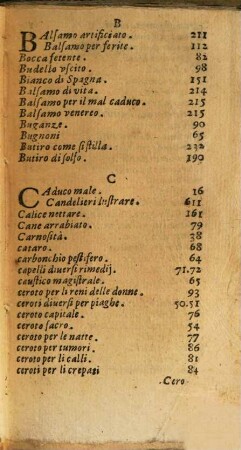 B
BAlsamo artificiato. 211
Balsamo per ferite. 112
Bocca fetente. 82
Budello vscito. 98
Bianco di Spagna. 215
Balsamo di vita. 214
Balsamo per il mal caduco. 215
Balsamo venereo. 215
Buganze. 90
Bugnoni 65
Butiro come si stilla. 232
Butiro di solfo. 190
C
CAduco male. 16
Candelieri lustrare. 611
Calice nettare. 161
Cane arrabiato. 79
Carnosità. 38
cataro. 68
carbonchio pestifero. 64
capelli diuersi rimedij. 71.72
caustico magistrale. 65
ceroto per li reni delle donne. 93
ceroti diuersi per piaghe. 50.51
ceroto capitale. 76
ceroto sacro. 54
ceroto per le natte. 77
ceroto per tumori. 86
ceroto per li calli. 81
ceroti per li crepasi 84
Cero